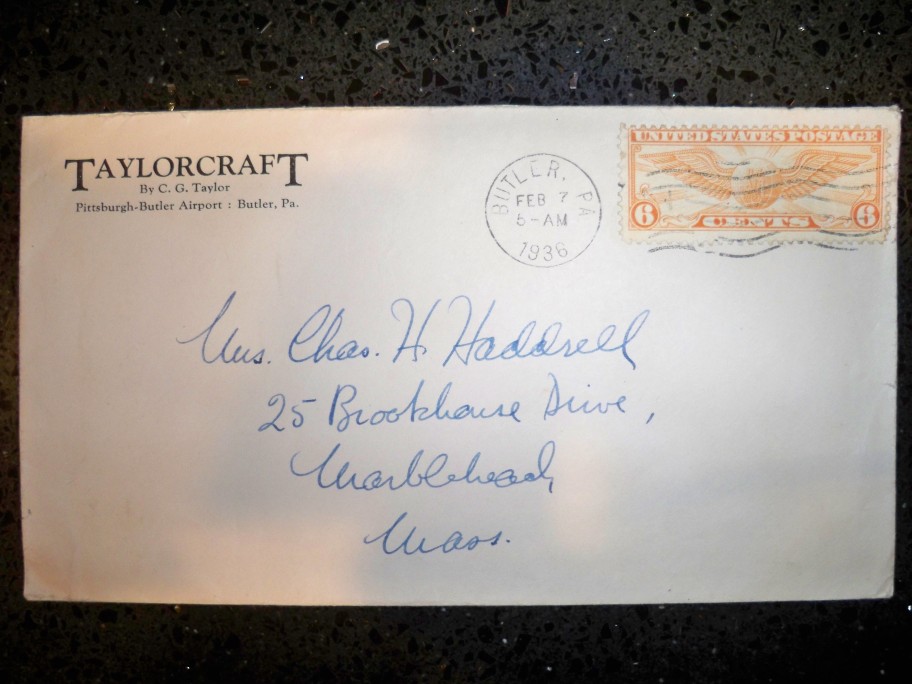 TAYLORCRAFT
By C. G. Taylor
Pittsburgh-Butler Airport : Butler, Pa.
BUTLER, PA
FEB 7
5-AM
1936
UNITED STATES POSTAGE
6 CENTS 6
Mrs. Chas. H. Haddrell
25 Brookhouse Drive,
Marblehead,
Mass.